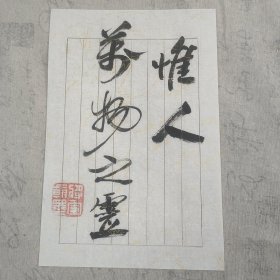 惟人
萬物之靈